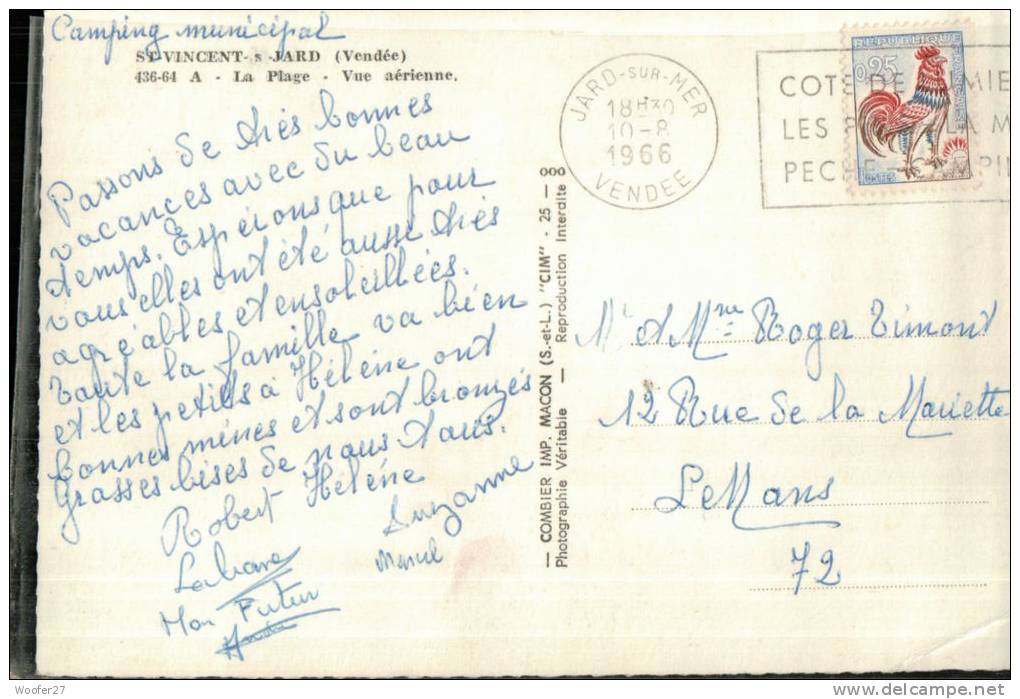 Camping municipal
ST-VINCENT-s-JARD (Vendée)
436-64 A - La Plage - Vue aérienne.
Passons de très bonnes
vacances avec du beau
temps. Espérons que pour
vous elles ont été aussi très
agréables et ensoleillées.
Toute la famille va bien
et les petits à Hélène ont
bonnes mines et sont bronzés
Grosses bises de nous tous.
Robert Hélène
Suzanne
Marcel
Mon Futur
COMBIER IMP. MACON (S.-et-L.) "CIM" - 25 - ooo
Photographie Véritable — Reproduction Interdite
JARD-SUR-MER
18H30
10-8
1966
VENDEE
COTE DE
LES
PEC
REPUBLIQUE FRANÇAISE
0,25
Mr et Mme Roger Timont
12 Rue de la Mariette
Le Mans
72
Woofer27
www.delcampe.net